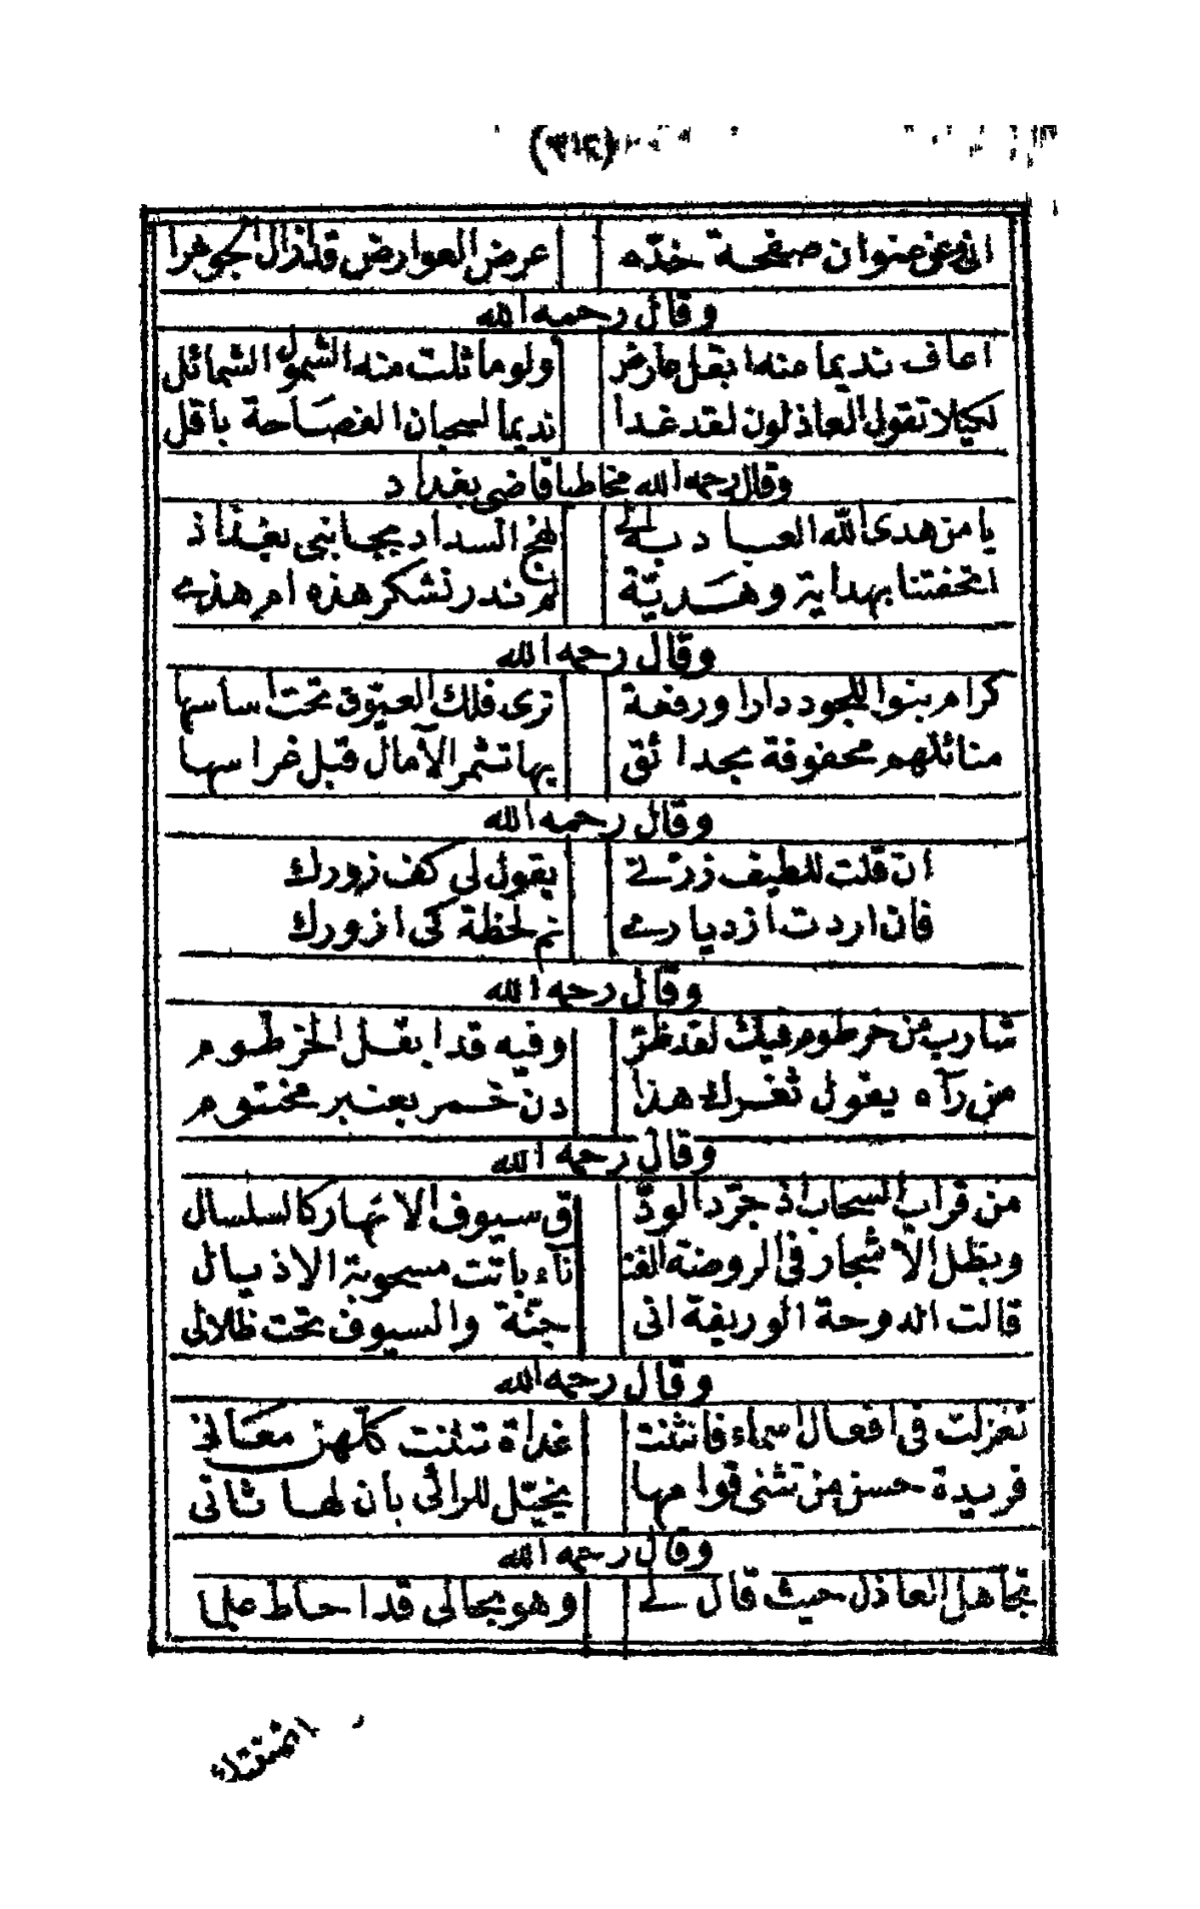 (٣١٤)
عن عنوان صفحة خدّه عرض العوارض قال ازال جوهرا
وقال رحمه الله
اعاف نديما منه ابقل عارض ولو ماثلت منه الشمول الشمائل
لكيلا تقول العاذلون لقد غدا نديما لسحبان الفصاحة باقل
وقال رحمه الله مخاطبا قاضى بغداد
يا من هدى الله العباد به الى نهج السداد بجانبى بغداذ
اتحفتنا بهداية وهديّة لم ندر نشكر هذه ام هذى
وقال رحمه الله
كرام بنوا للجود دارا ورفعة ترى فلك العيّوق تحت اساسها
منائلهم محفوفة بحدائق بها تثمر الآمال قبل غراسها
وقال رحمه الله
ان قلت للطيف زرنى يقول لى كف زورك
فان اردت ازديارى نم لحظة كى ازورك
وقال رحمه الله
شارب من خرطوم فيك لقد ظرّ وفيه قد ابقل الخرطوم
من رآه يقول ثغرك هذا دن خمر بعنبر مختوم
وقال رحمه الله
من قراب السحاب اذ جرّد الودّ ق سيوف الانهار كالسلسال
وبظل الاشجار فى الروضة الغنّ ناء باتت مسحوبة الاذيال
قالت الدوحة الوريفة انى جنّة والسيوف تحت ظلالى
وقال رحمه الله
تغزلت فى افعال اسماء فانثنت غداة تثنت كلهن معانى
فريدة حسن من تثنى قوامها يخيّل للرائى بان لها ثانى
وقال رحمه الله
تجاهل العاذل حيث قال لى وهو بحالى قد احاط علما